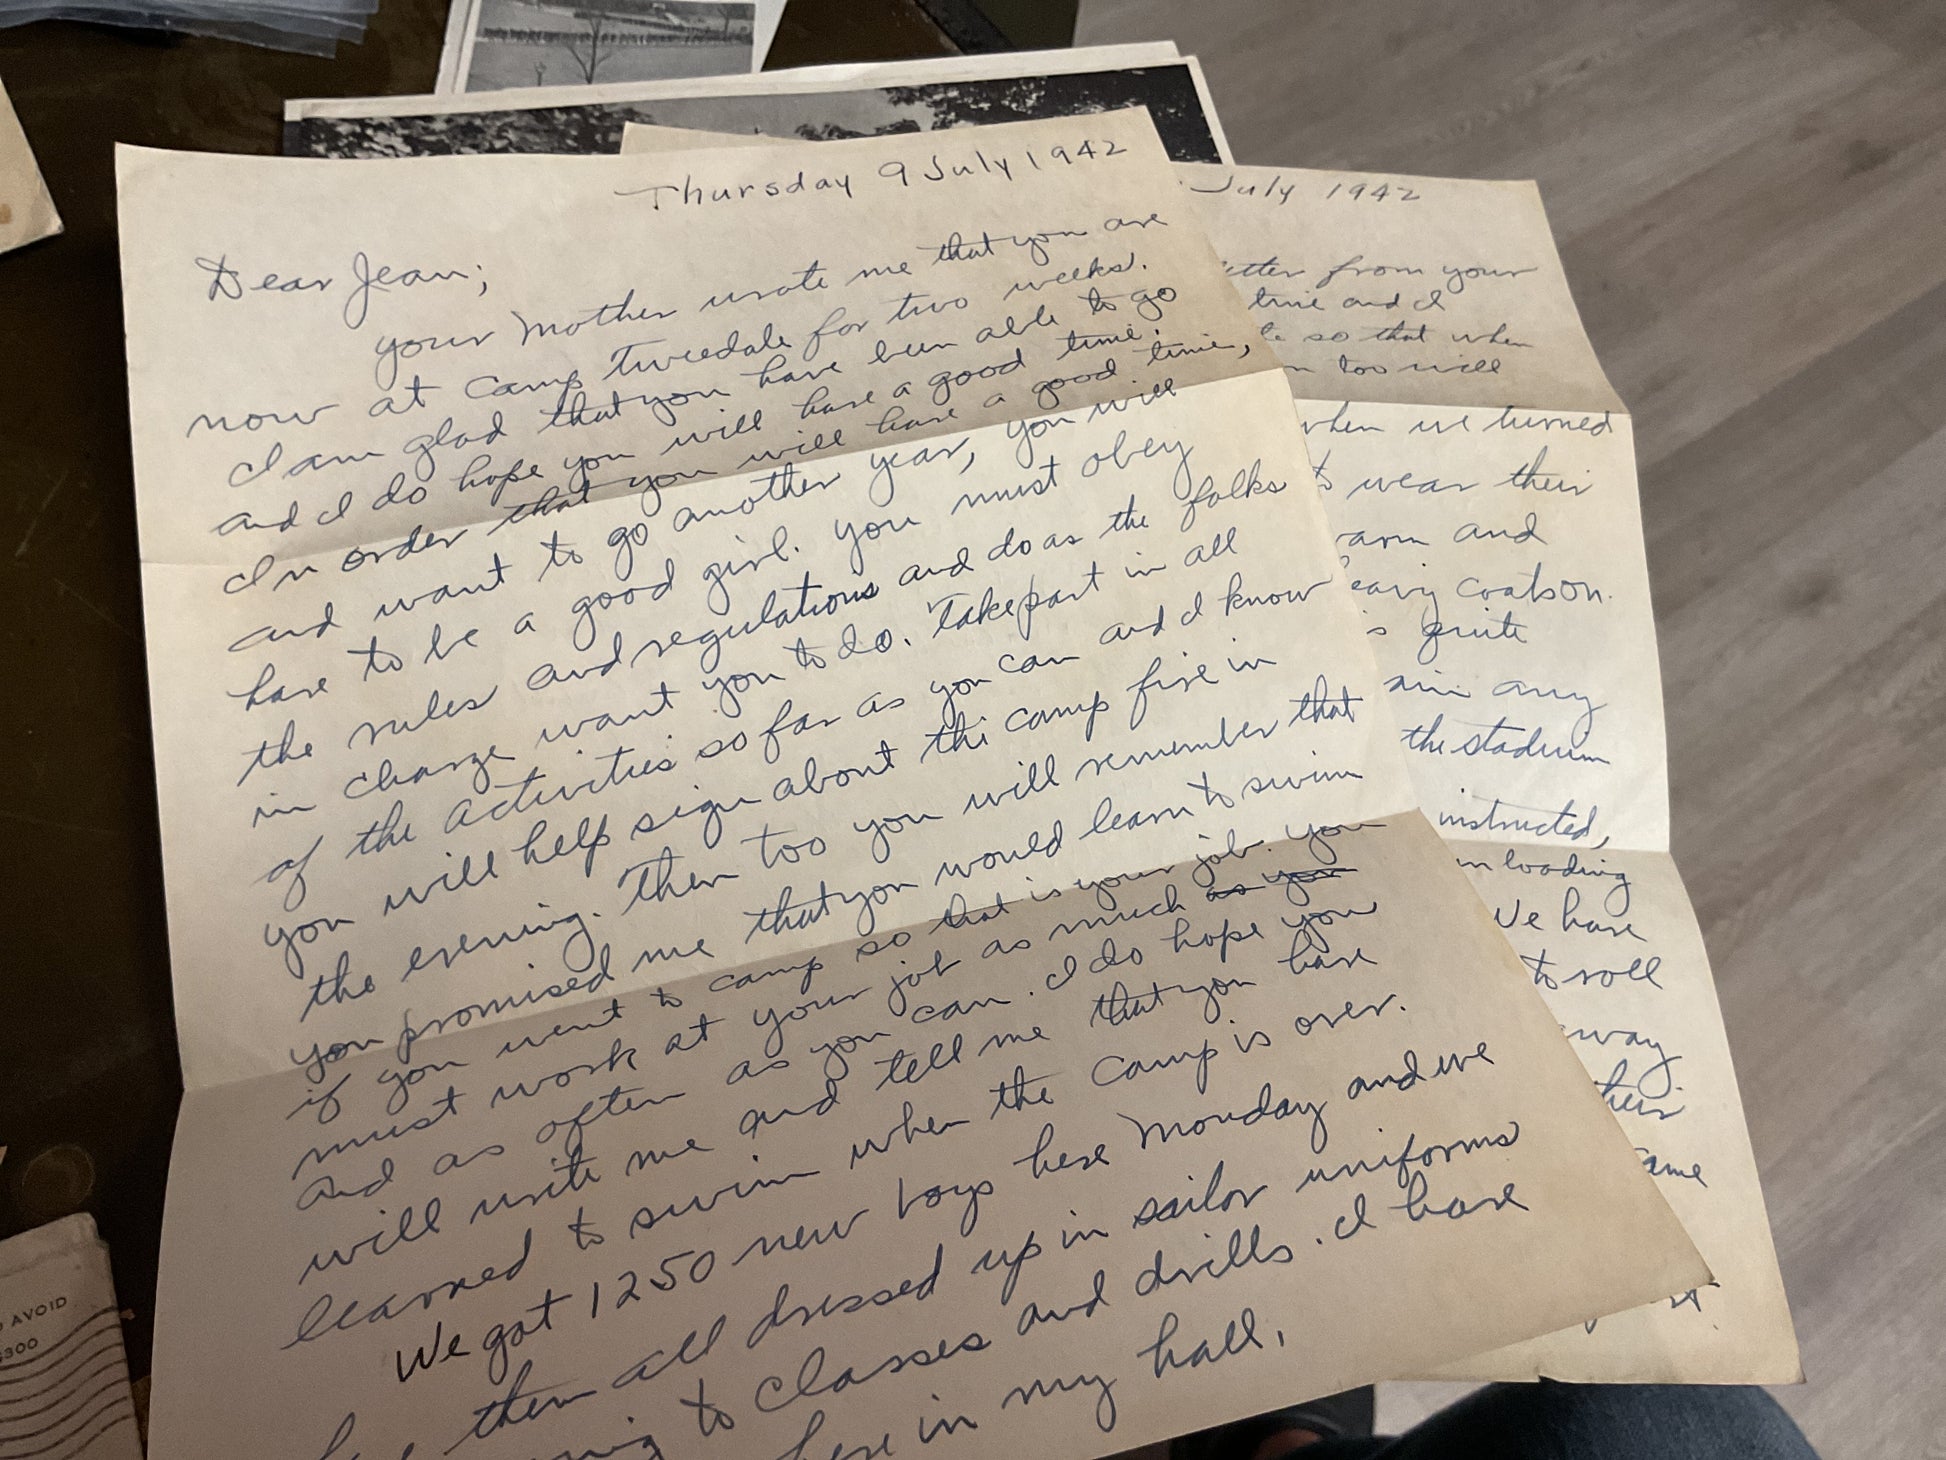 Thursday 9 July 1942
Dear Jean;
your Mother wrote me that you are
now at Camp Tweedale for two weeks.
I am glad that you have been able to go
and I do hope you will have a good time.
In order that you will have a good time,
and want to go another year, you will
have to be a good girl. you must obey
the rules and regulations and do as the folks
in charge want you to do. Take part in all
of the activities so far as you can and I know
you will help sign about the camp fire in
the evening. Then too you will remember that
you promised me that you would learn to swim
if you went to camp so that is your job. you
must work at your job as much as you
and as often as you can. I do hope you
will write me and tell me that you have
learned to swim when the camp is over.
We got 1250 new boys here Monday and we
them all dressed up in sailor uniforms
to classes and drills. I have
here in my hall.
July 1942
letter from your
time and I
so that when
too will
when we turned
to wear their
warm and
heavy coats on.
is quite
any
the stadium
instructed,
in loading
We have
to roll
away
their
same
AVOID
$300